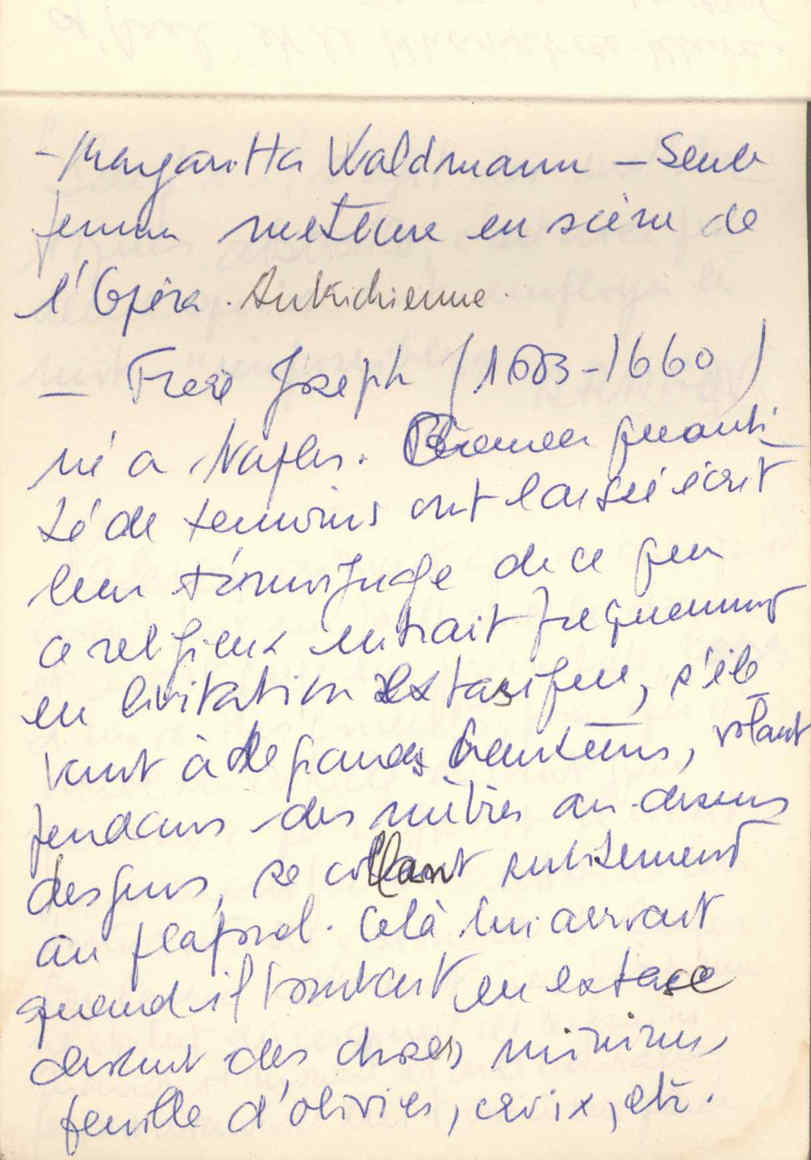 - Margaritta Waldmann - Seule
femme metteur en scène de
l'Opéra. Autrichienne.
- Frère Joseph (1603-1660)
né a Naples. quanti-
té de temoins ont laissé écrit
leur témoignage de ce que
ce religieux entrait frequemment
en lévitation extasique, s'éle
vant à de grandes hauteurs, volant
pendant des mètres au-dessus
des gens, se collant subitement
au plafond. Celà lui arrivait
quand il tombait en extase
devant des choses minimes
feuille d'olivier, croix, etc.